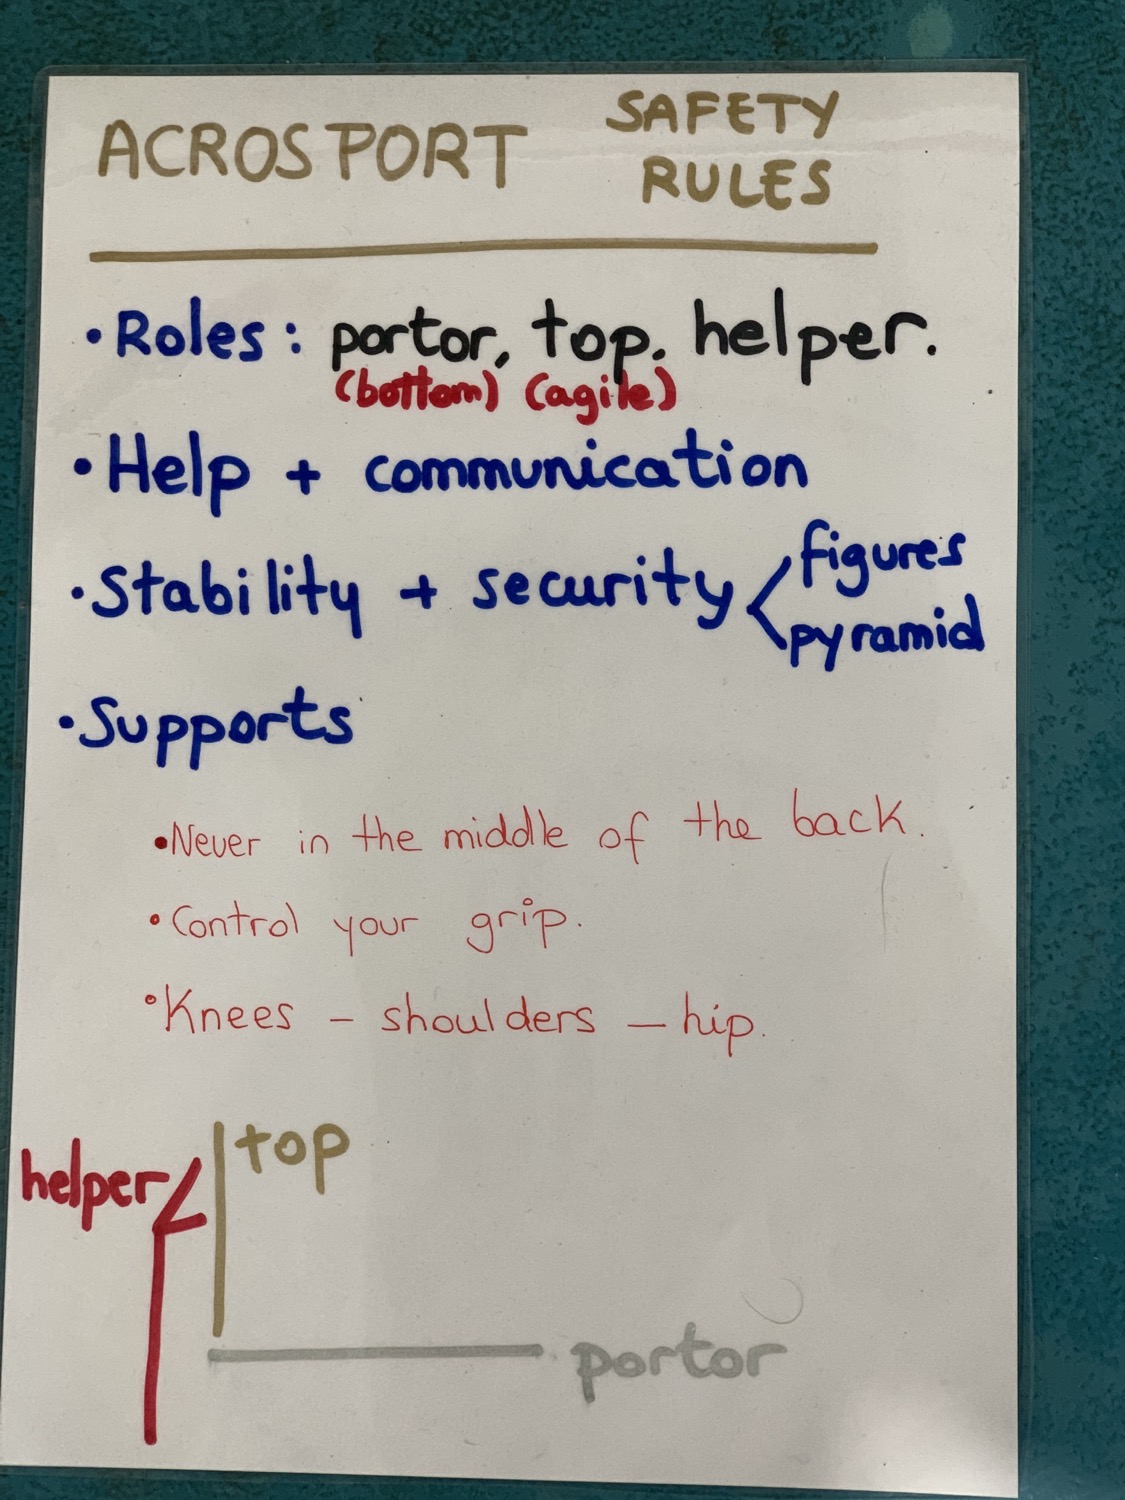 ACROSPORT SAFETY RULES
• Roles: portor, top, helper.
(bottom) (agile)
• Help + communication
• Stability + security < figures
pyramid
• Supports
• Never in the middle of the back.
• Control your grip.
• Knees – shoulders – hip.
top
helper
portor